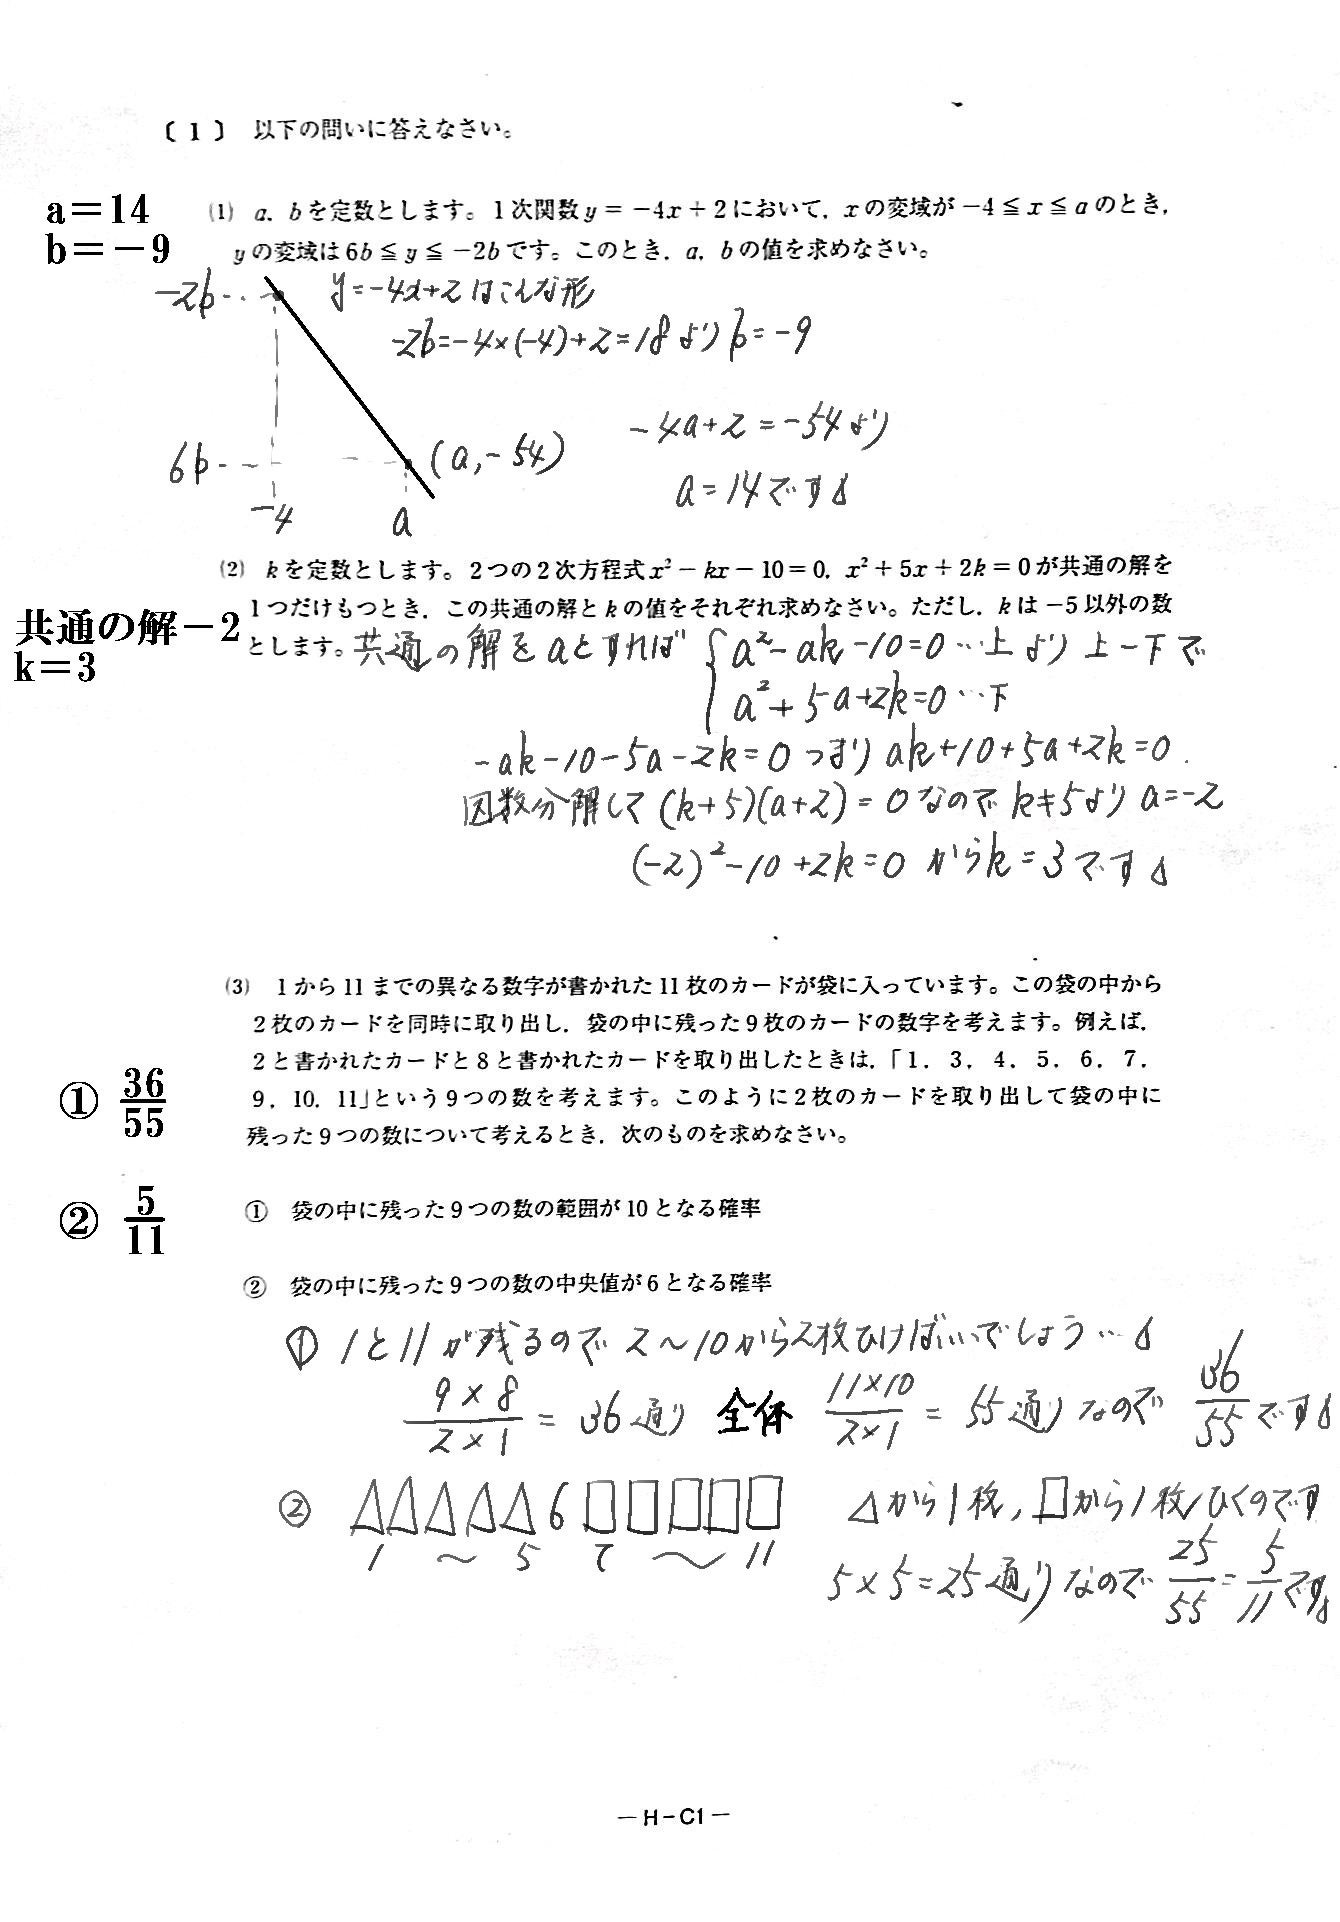 〔 1 〕 以下の問いに答えなさい。
a=14
b=-9
(1) a, bを定数とします。1次関数y = -4x + 2において, xの変域が -4 ≦ x ≦ aのとき,
yの変域は 6b ≦ y ≦ -2b です。このとき, a, bの値を求めなさい。
-2b
y=-4x+2はこんな形
-2b=-4×(-4)+2=18より b=-9
-4a+2=-54より
6b
(a,-54)
a=14です
-4
a
(2) kを定数とします。2つの2次方程式x² - kx - 10 = 0, x² + 5x + 2k = 0が共通の解を
1つだけもつとき, この共通の解とkの値をそれぞれ求めなさい。ただし, kは-5以外の数
とします。
共通の解-2
k=3
共通の解をaとすれば
a²-ak-10=0…上より 上-下で
a²+5a+2k=0…下
-ak-10-5a-2k=0 つまり ak+10+5a+2k=0.
因数分解して (k+5)(a+2)=0なので k≠5より a=-2
(-2)²-10+2k=0 からk=3です
(3) 1から11までの異なる数字が書かれた11枚のカードが袋に入っています。この袋の中から
2枚のカードを同時に取り出し, 袋の中に残った9枚のカードの数字を考えます。例えば,
2と書かれたカードと8と書かれたカードを取り出したときは,「1, 3, 4, 5, 6, 7,
9, 10, 11」という9つの数を考えます。このように2枚のカードを取り出して袋の中に
残った9つの数について考えるとき, 次のものを求めなさい。
① 36/55
② 5/11
① 袋の中に残った9つの数の範囲が10となる確率
② 袋の中に残った9つの数の中央値が6となる確率
① 1と11が残るので 2～10から2枚ひけばいいでしょう…
9×8/2×1 = 36通り 全体 11×10/2×1 = 55通りなので 36/55です
② △△△△△6□□□□□ △から1枚, □から1枚ひくのです
1 ～ 5 7 ～ 11
5×5=25通りなので 25/55=5/11です
― H-C1 ―